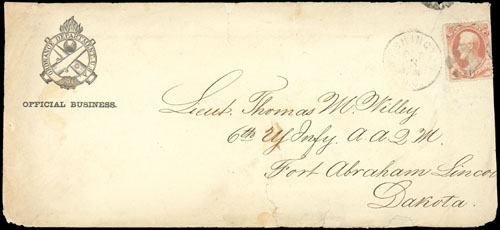 ORDNANCE DEPARTMENT, U.S.A.
OFFICIAL BUSINESS.
SHING
Lieut. Thomas M. Willey
6th Infy. A A Q M.
Fort Abraham Lincol
Dakota.